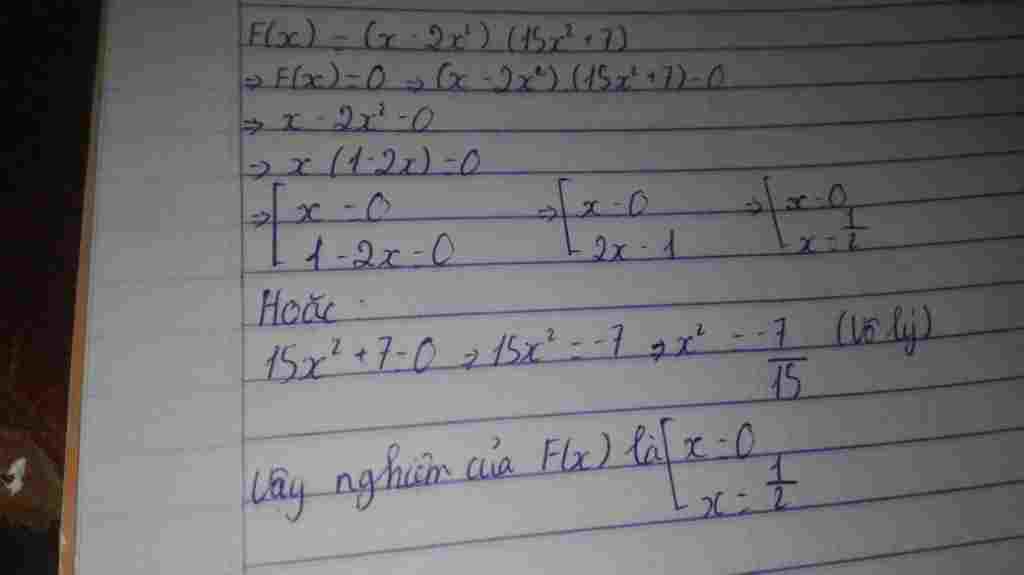 F(x) = (x - 2x²) (15x² + 7)
⇒ F(x) = 0 ⇒ (x - 2x²) (15x² + 7) = 0
⇒ x - 2x² = 0
⇒ x (1 - 2x) = 0
⇒ [ x = 0 ⇒ [ x = 0 ⇒ [ x = 0
1 - 2x = 0 2x = 1 x = 1/2
Hoặc :
15x² + 7 = 0 ⇒ 15x² = -7 ⇒ x² = -7/15 (Vô lý)
Vậy nghiệm của F(x) là [ x = 0
x = 1/2